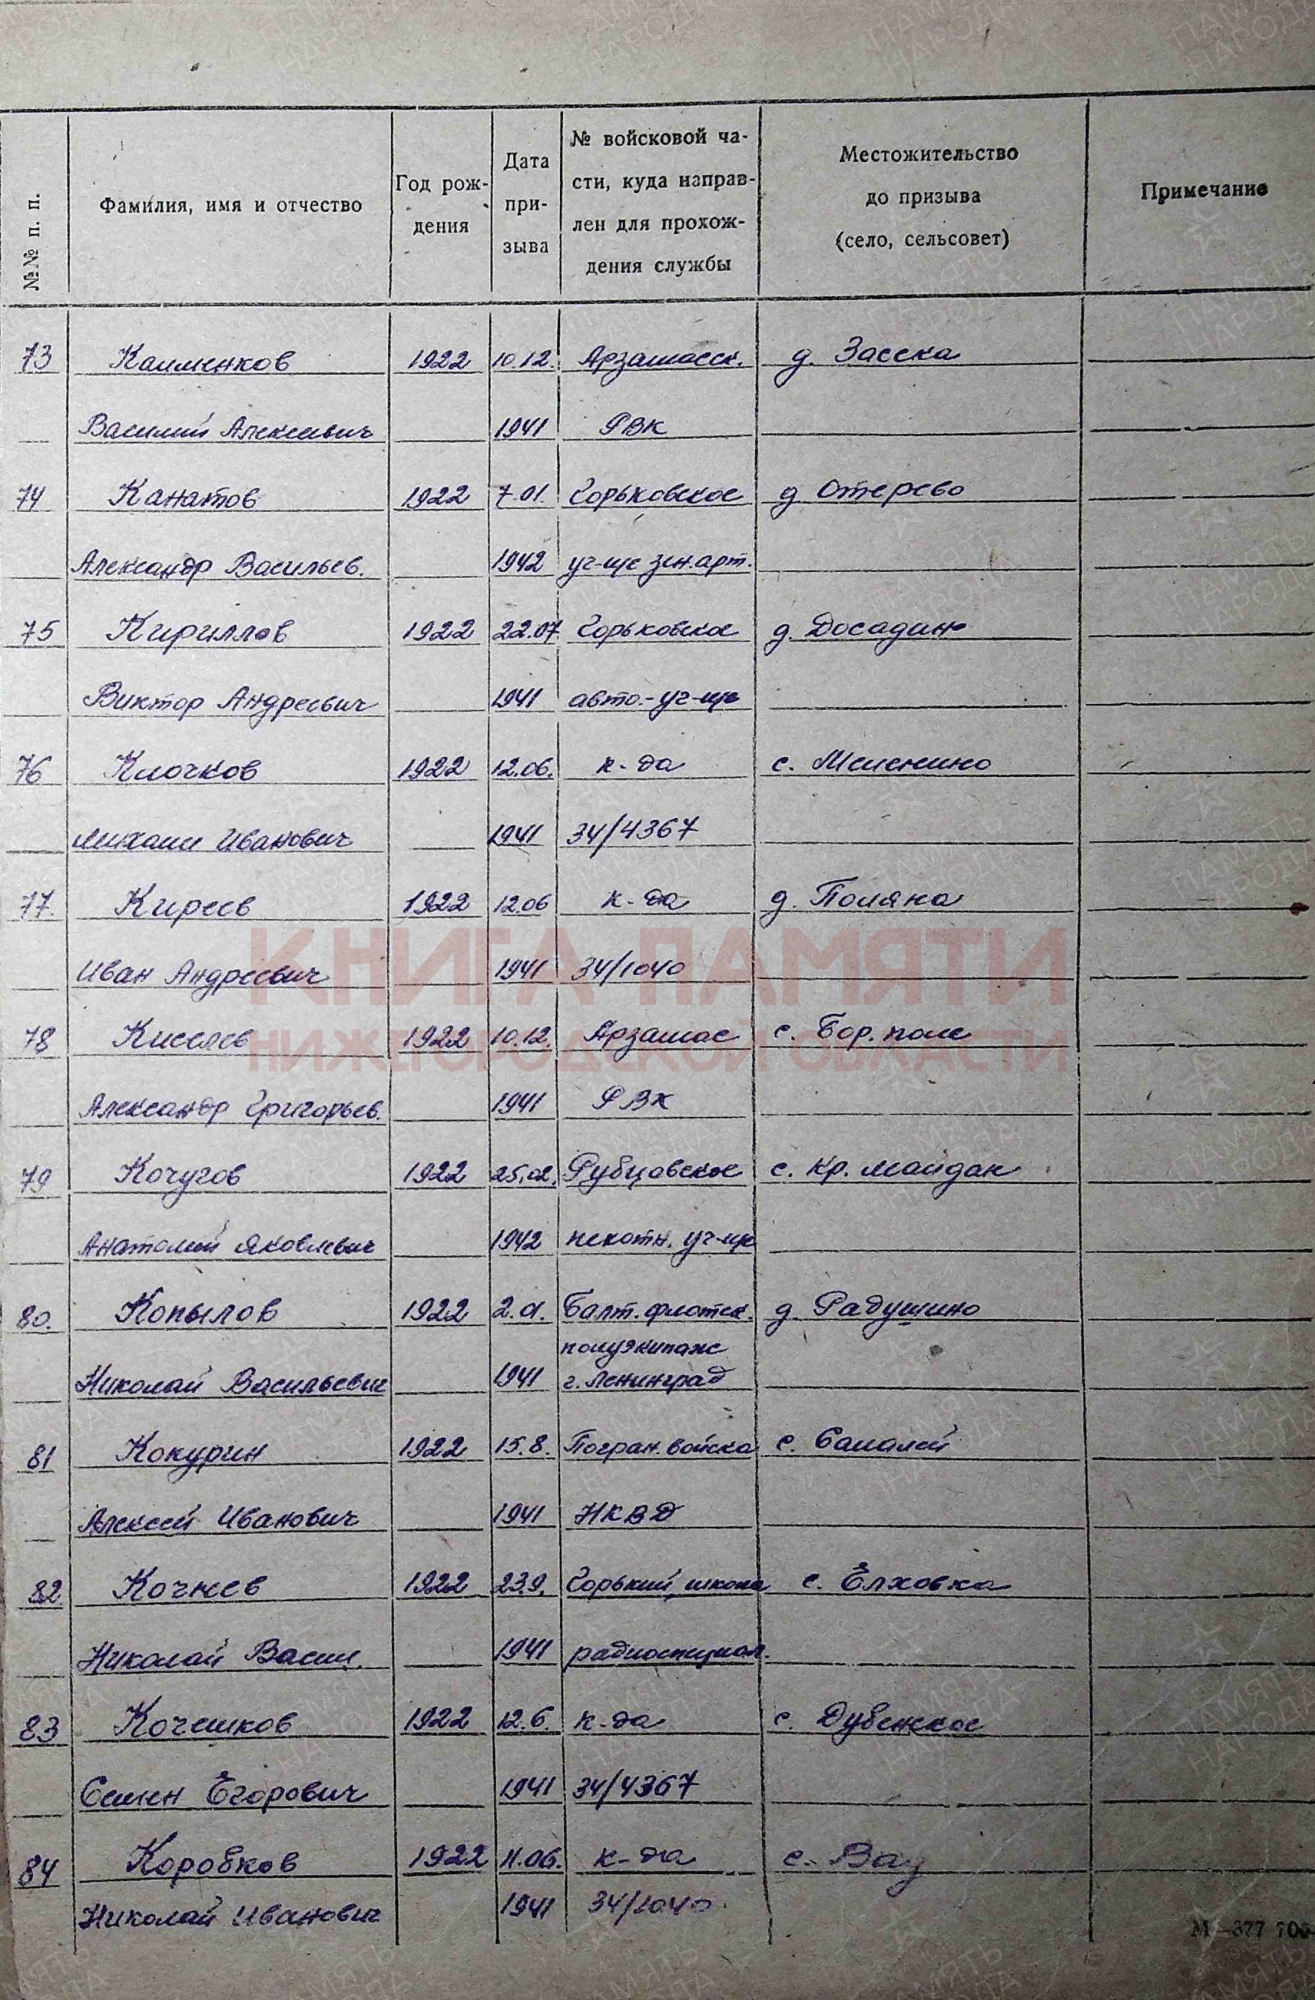 №№ п. п.
Фамилия, имя и отчество
Год рож-
дения
Дата
при-
зыва
№ войсковой ча-
сти, куда направ-
лен для прохож-
дения службы
Местожительство
до призыва
(село, сельсовет)
Примечание
73 Клименков 1922 10.12. Арзамасск. д. Засека
Василий Алексеевич 1941 РВК
74 Канатов 1922 7.01. Горьковское д. Отерево
Александр Васильев. 1942 уч-ще зен.арт.
75 Кириллов 1922 22.07. Горьковское д. Досадино
Виктор Андреевич 1941 авто-уч-ще
76 Клочков 1922 12.06. к-да с. Меленино
Михаил Иванович 1941 34/4367
77. Киреев 1922 12.06 к-да д. Поляна
Иван Андреевич 1941 34/1040
КНИГА ПАМЯТИ
78 Киселев 1922 10.12. Арзамас с. Бор. поле
НИЖЕГОРОДСКОЙ ОБЛАСТИ
Александр Григорьев. 1941 РВК
79 Кочугов 1922 25.02. Рубцовское с. Кр. Майдан
Анатолий Яковлевич 1942 пехотн. уч-ще
80. Копылов 1922 2.01. Балт. флотск. д. Радушино
полуэкипаж
Николай Васильевич 1941 г. Ленинград
81 Кокурин 1922 15.8. Погран. войска с.
Алексей Иванович 1941 НКВД
82 Кочнев 1922 23.9. Горький, школа с. Елховка
Николай Васил. 1941 радиоспециал.
83 Кочешков 1922 12.6. к-да с. Дубенское
Семен Егорович 1941 34/4367
84 Коробков 1922 11.06. к-да с. Вад
Николай Иванович 1941 34/1040
М-377 700